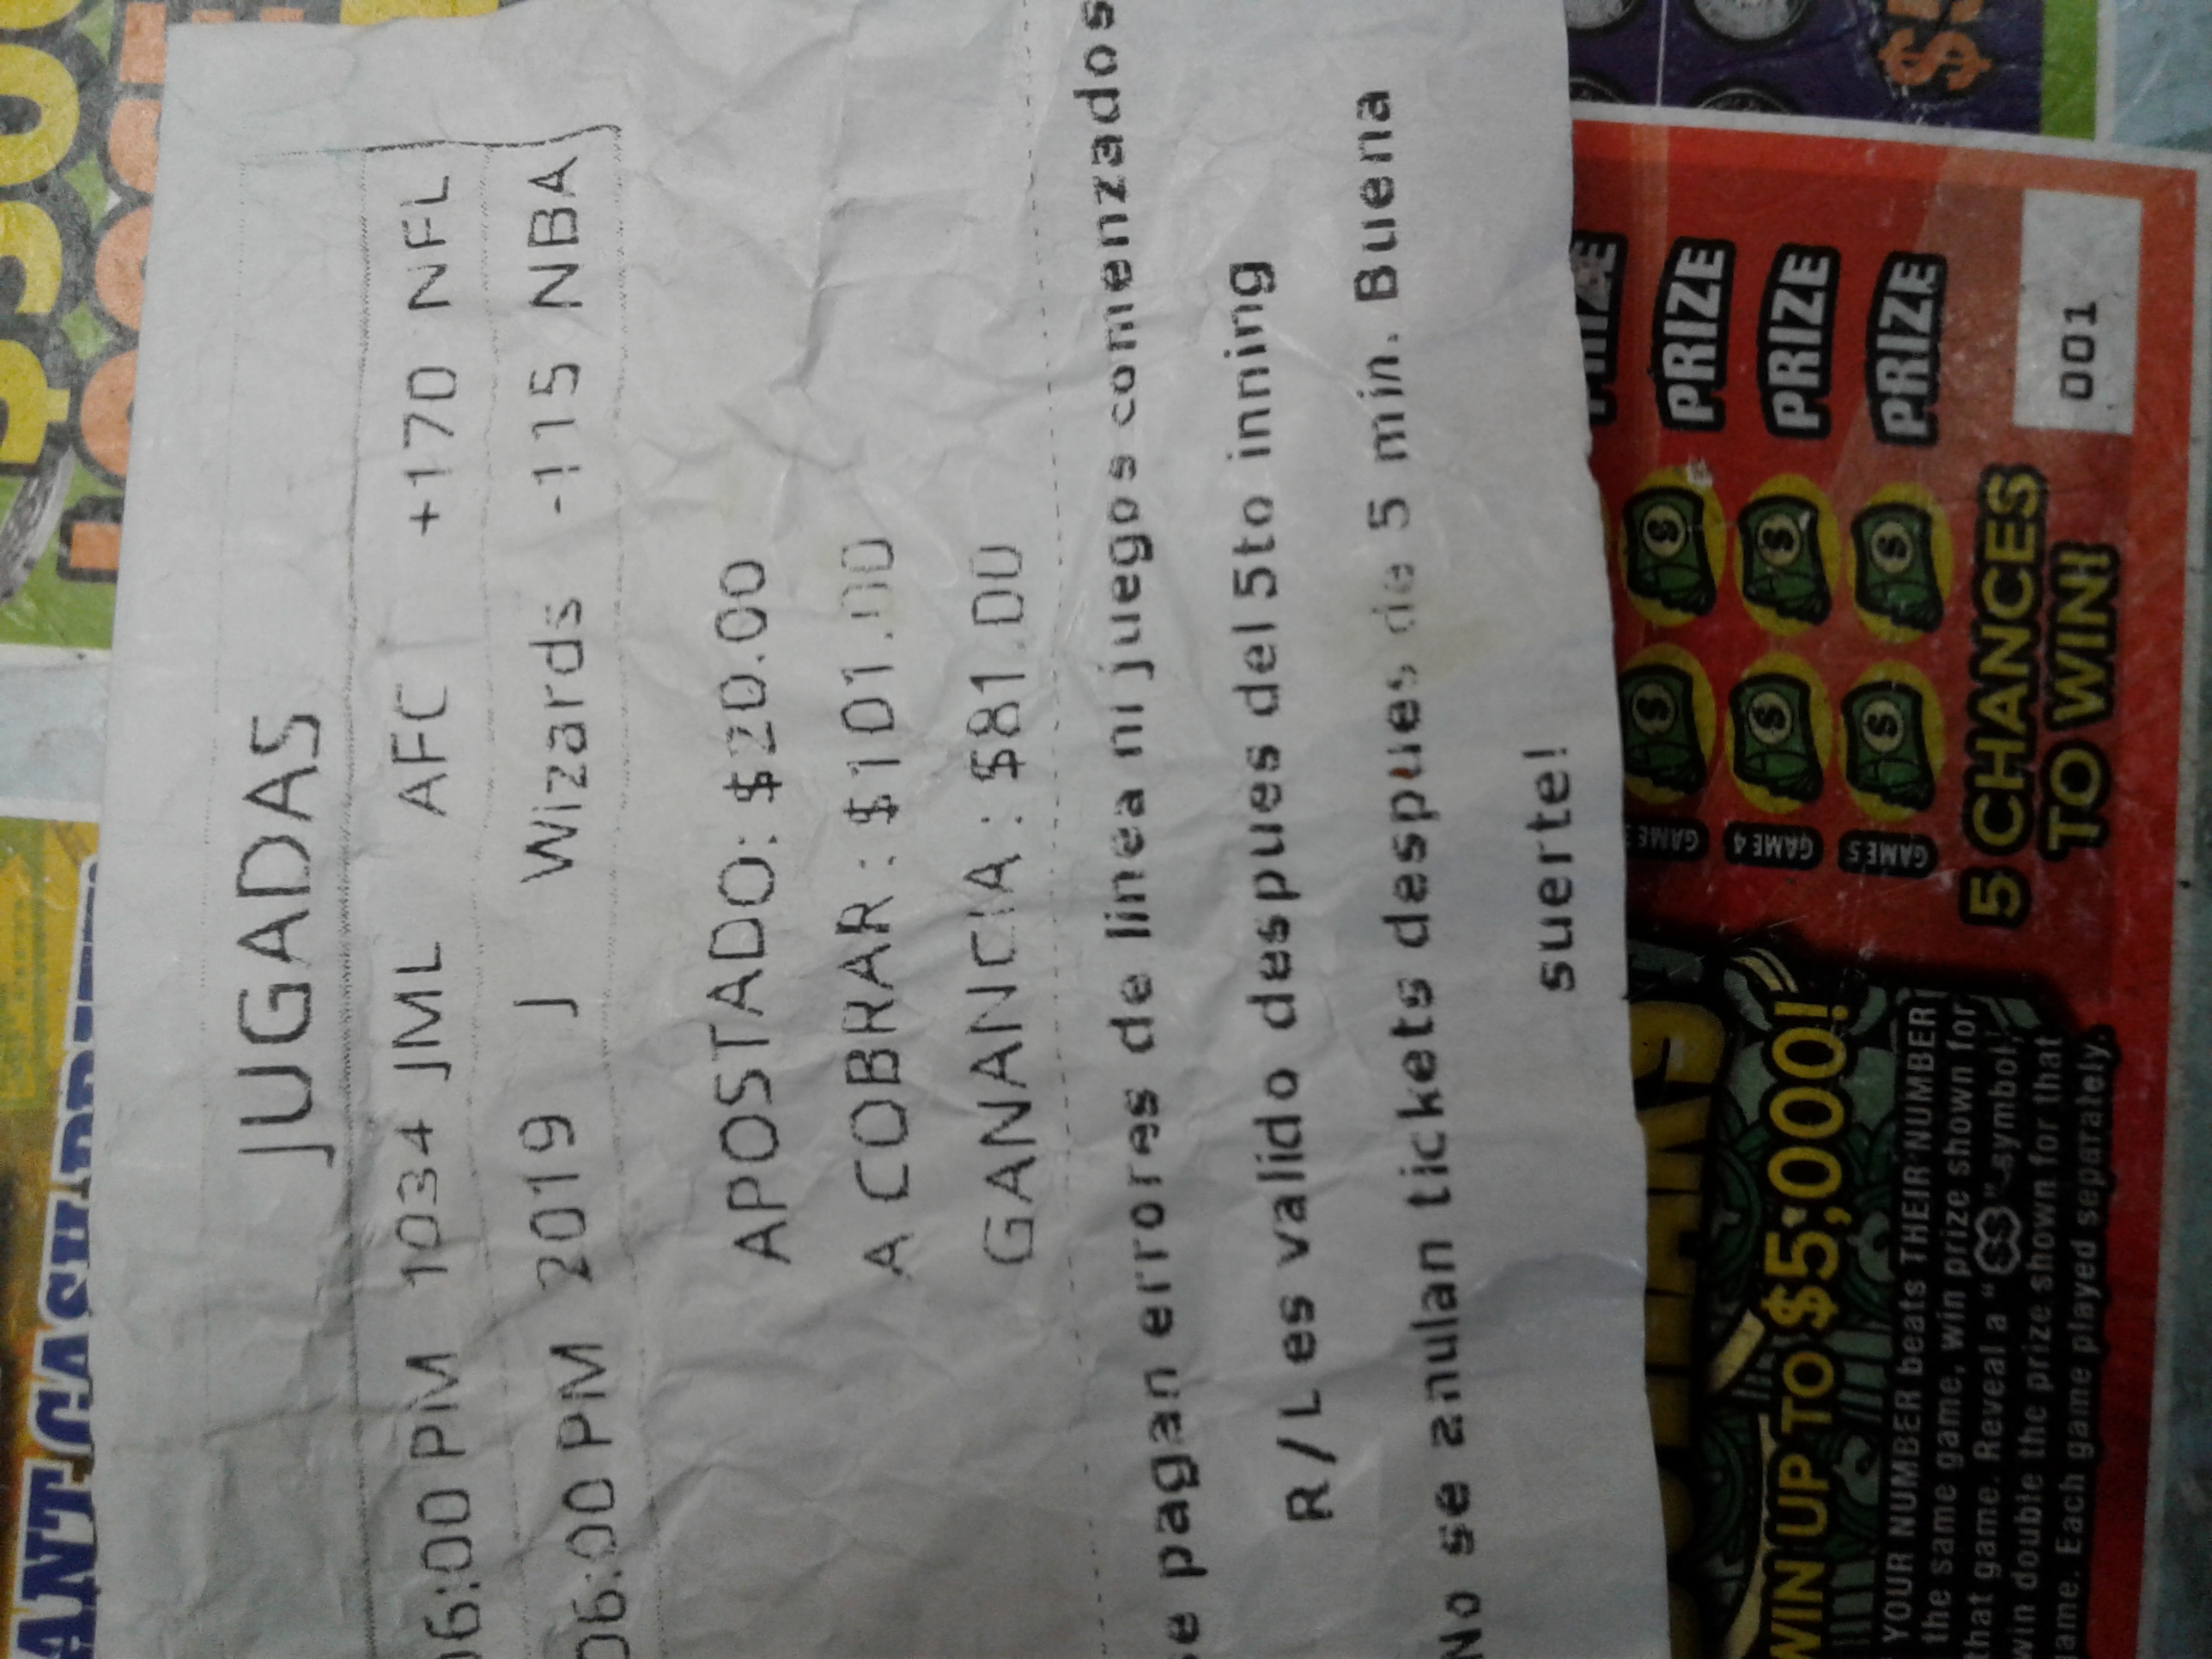 JUGADAS
06:00 PM 1034 JML AFC +170 NFL
06:00 PM 2019 J Wizards -115 NBA
APOSTADO: $20.00
A COBRAR : $101.00
GANANCIA : $81.00
se pagan errores de linea ni juegos comenzados
R/L es valido despues del 5to inning
No se anulan tickets despues de 5 min. Buena
suerte!
PRIZE
PRIZE
PRIZE
PRIZE
001
GAME 4
GAME 5
5 CHANCES
TO WIN!
WIN UP TO $5,000!
YOUR NUMBER beats THEIR NUMBER
the same game, win prize shown for
that game. Reveal a "$$" symbol,
win double the prize shown for that
game. Each game played separately.